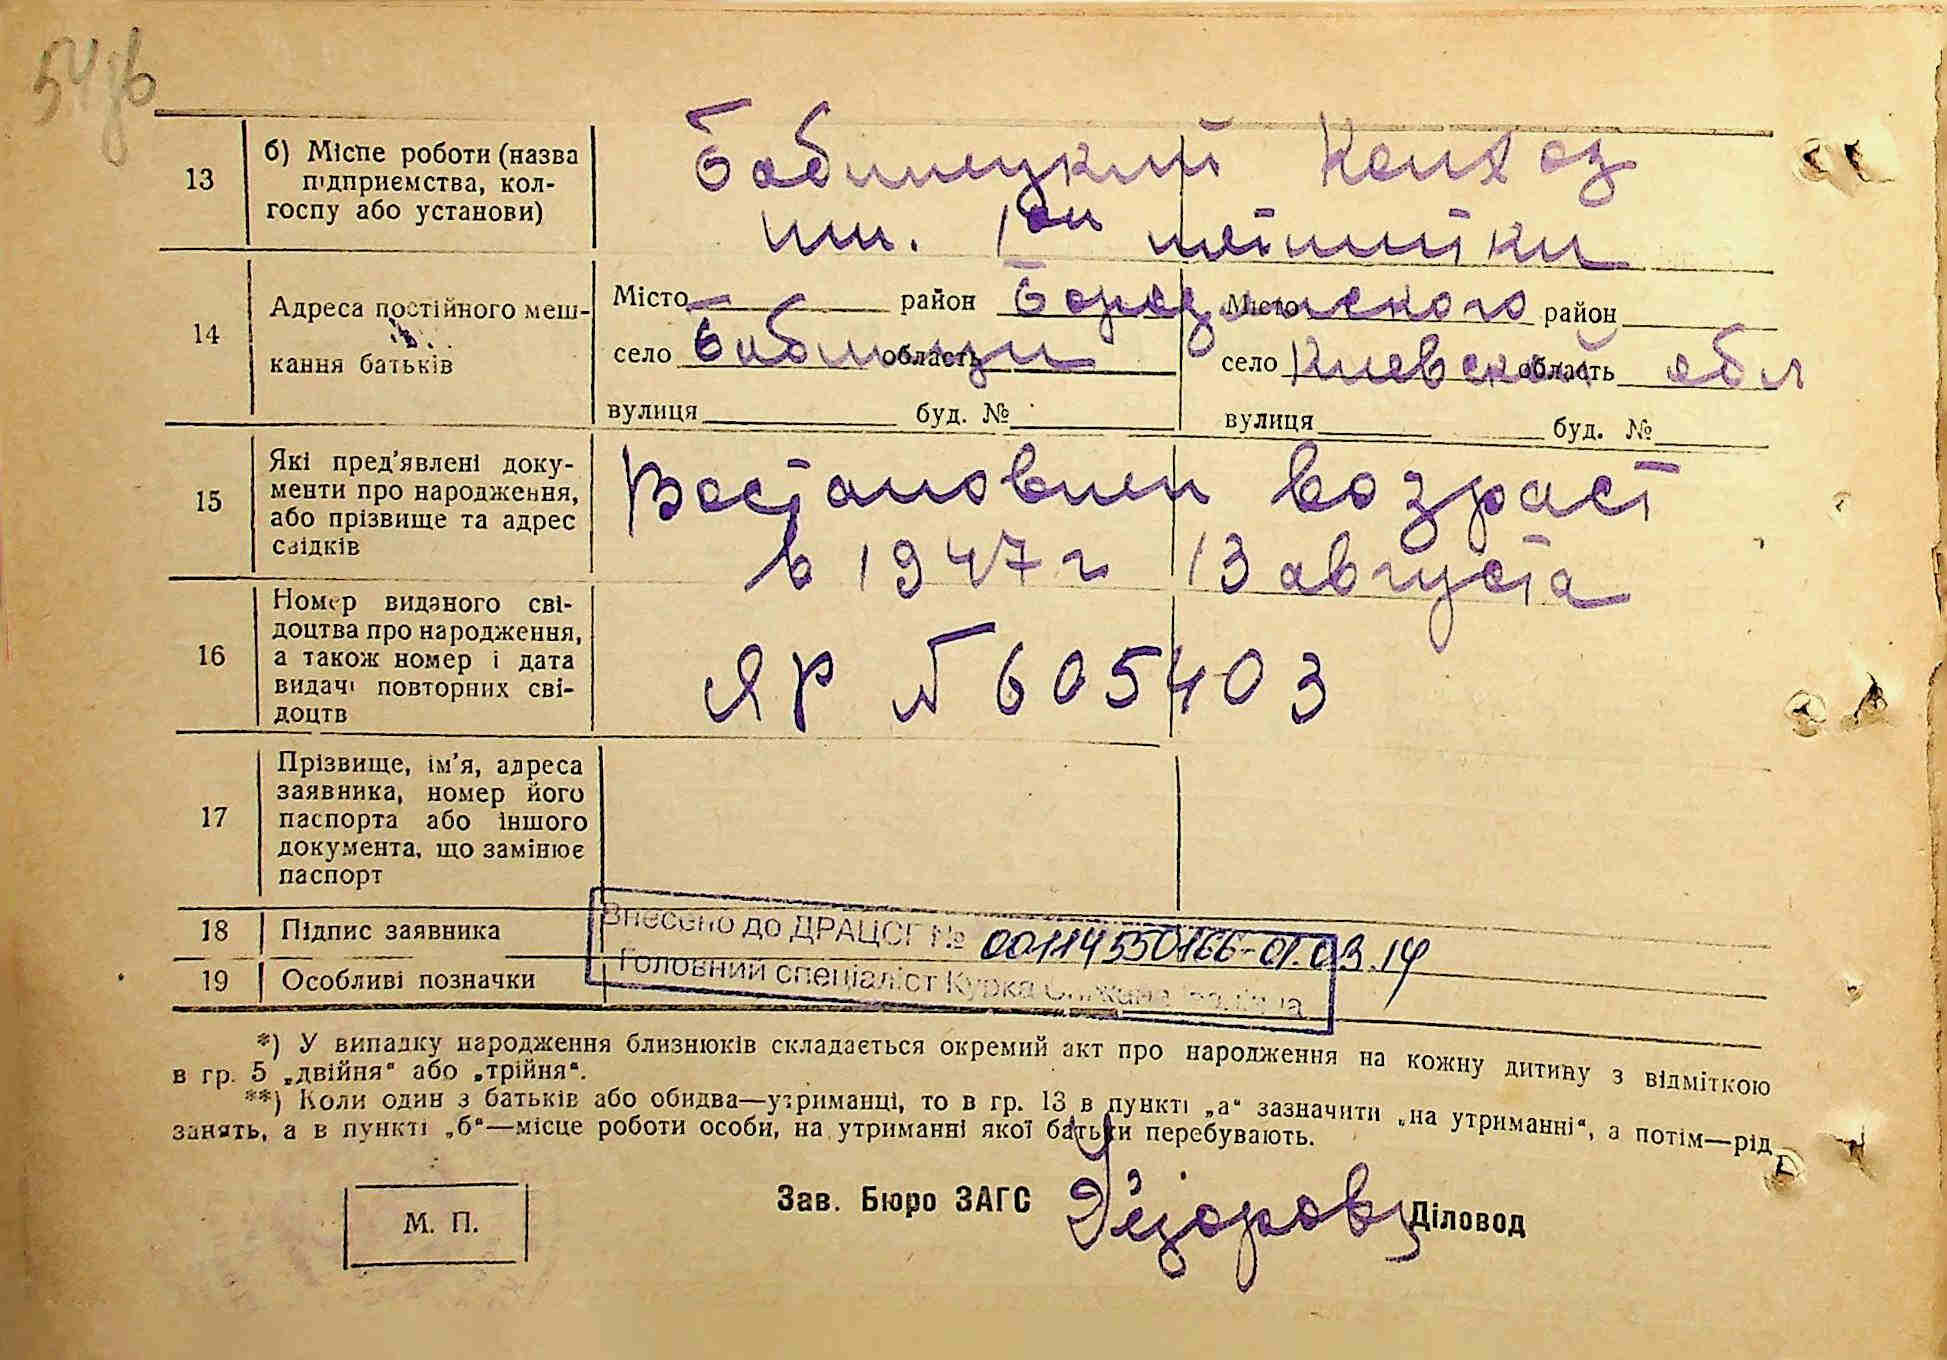 54 зв
13
б) Місце роботи (назва
підприємства, кол-
госпу або установи)
Бабинецкий Колхоз
им. 1ой пятилітки
14
Адреса постійного меш-
кання батьків
Місто район Бородянского Місто район
село Бабинцы область село Киевской область обл
вулиця буд. № вулиця буд. №
15
Які пред'явлені доку-
менти про народження,
або прізвище та адрес
свідків
Востановлен возраст
в 1947 г 13 августа
16
Номер виданого сві-
доцтва про народження,
а також номер і дата
видачі повторних сві-
доцтв
ЯР № 605403
17
Прізвище, ім'я, адреса
заявника, номер його
паспорта або іншого
документа, що замінює
паспорт
18 Підпис заявника
19 Особливі позначки
Внесено до ДРАЦСГ № 00114550166-01.03.14
Головний спеціаліст Курка
*) У випадку народження близнюків складається окремий акт про народження на кожну дитину з відміткою
в гр. 5 „двійня“ або „трійня“.
**) Коли один з батьків або обидва—утриманці, то в гр. 13 в пункті „а“ зазначити „на утриманні“, а потім—рід
занять, а в пункті „б“—місце роботи особи, на утриманні якої батьки перебувають.
М. П.
Зав. Бюро ЗАГС
Діловод